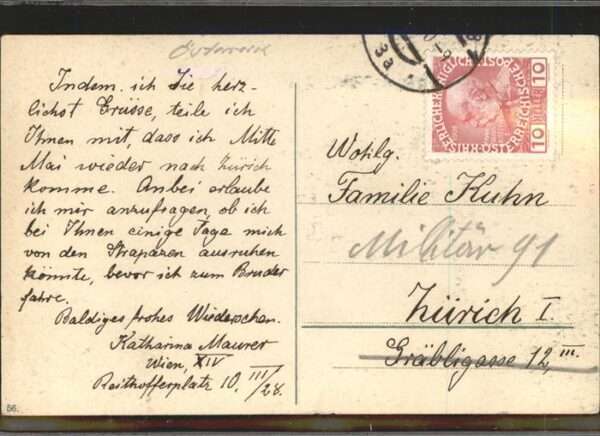 Österreich
Indem ich Sie herz-
lichst Grüsse, teile ich
Ihnen mit, dass ich Mitte
Mai wieder nach Zürich
komme. Anbei erlaube
ich mir anzufragen, ob ich
bei Ihnen einige Tage mich
von den Strapazen ausruhen
könnte, bevor ich zum Bruder
fahre.
Baldiges frohes Wiedersehen.
Katharina Maurer
Wien, XIV
Reithofferplatz 10. III/28.
56.
3a
10 HELLER 10
KAISERLICHE KÖNIGLICHE ÖSTERREICHISCHE POST
Wohlg.
Familie Kuhn
Militär 91
Zürich I.
Gräbligasse 12, III.